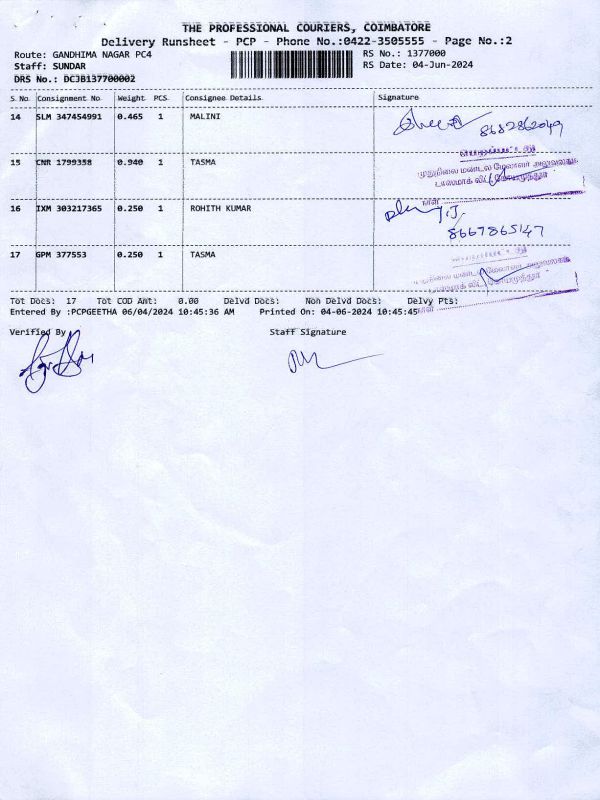 THE PROFESSIONAL COURIERS, COIMBATORE
Delivery Runsheet - PCP - Phone No.:0422-3505555 - Page No.:2
Route: GANDHIMA NAGAR PC4
RS No.: 1377000
Staff: SUNDAR
RS Date: 04-Jun-2024
DRS No.: DCJB137700002
S No Consignment No Weight PCS Consignee Details Signature
14 SLM 347454991 0.465 1 MALINI
8682862049
பெறப்பட்டது
15 CNR 1799358 0.940 1 TASMA
முதுநிலை மண்டல மேலாளர் அலுவலகம்
நாள்
16 IXM 303217365 0.250 1 ROHITH KUMAR
8667865147
17 GPM 377553 0.250 1 TASMA
முதுநிலை மண்டல மேலாளர் அலுவலகம்
நாள்
Tot Docs: 17 Tot COD Amt: 0.00 Delvd Docs: Non Delvd Docs: Delvy Pts:
Entered By :PCPGEETHA 06/04/2024 10:45:36 AM Printed On: 04-06-2024 10:45:45
Verified By Staff Signature